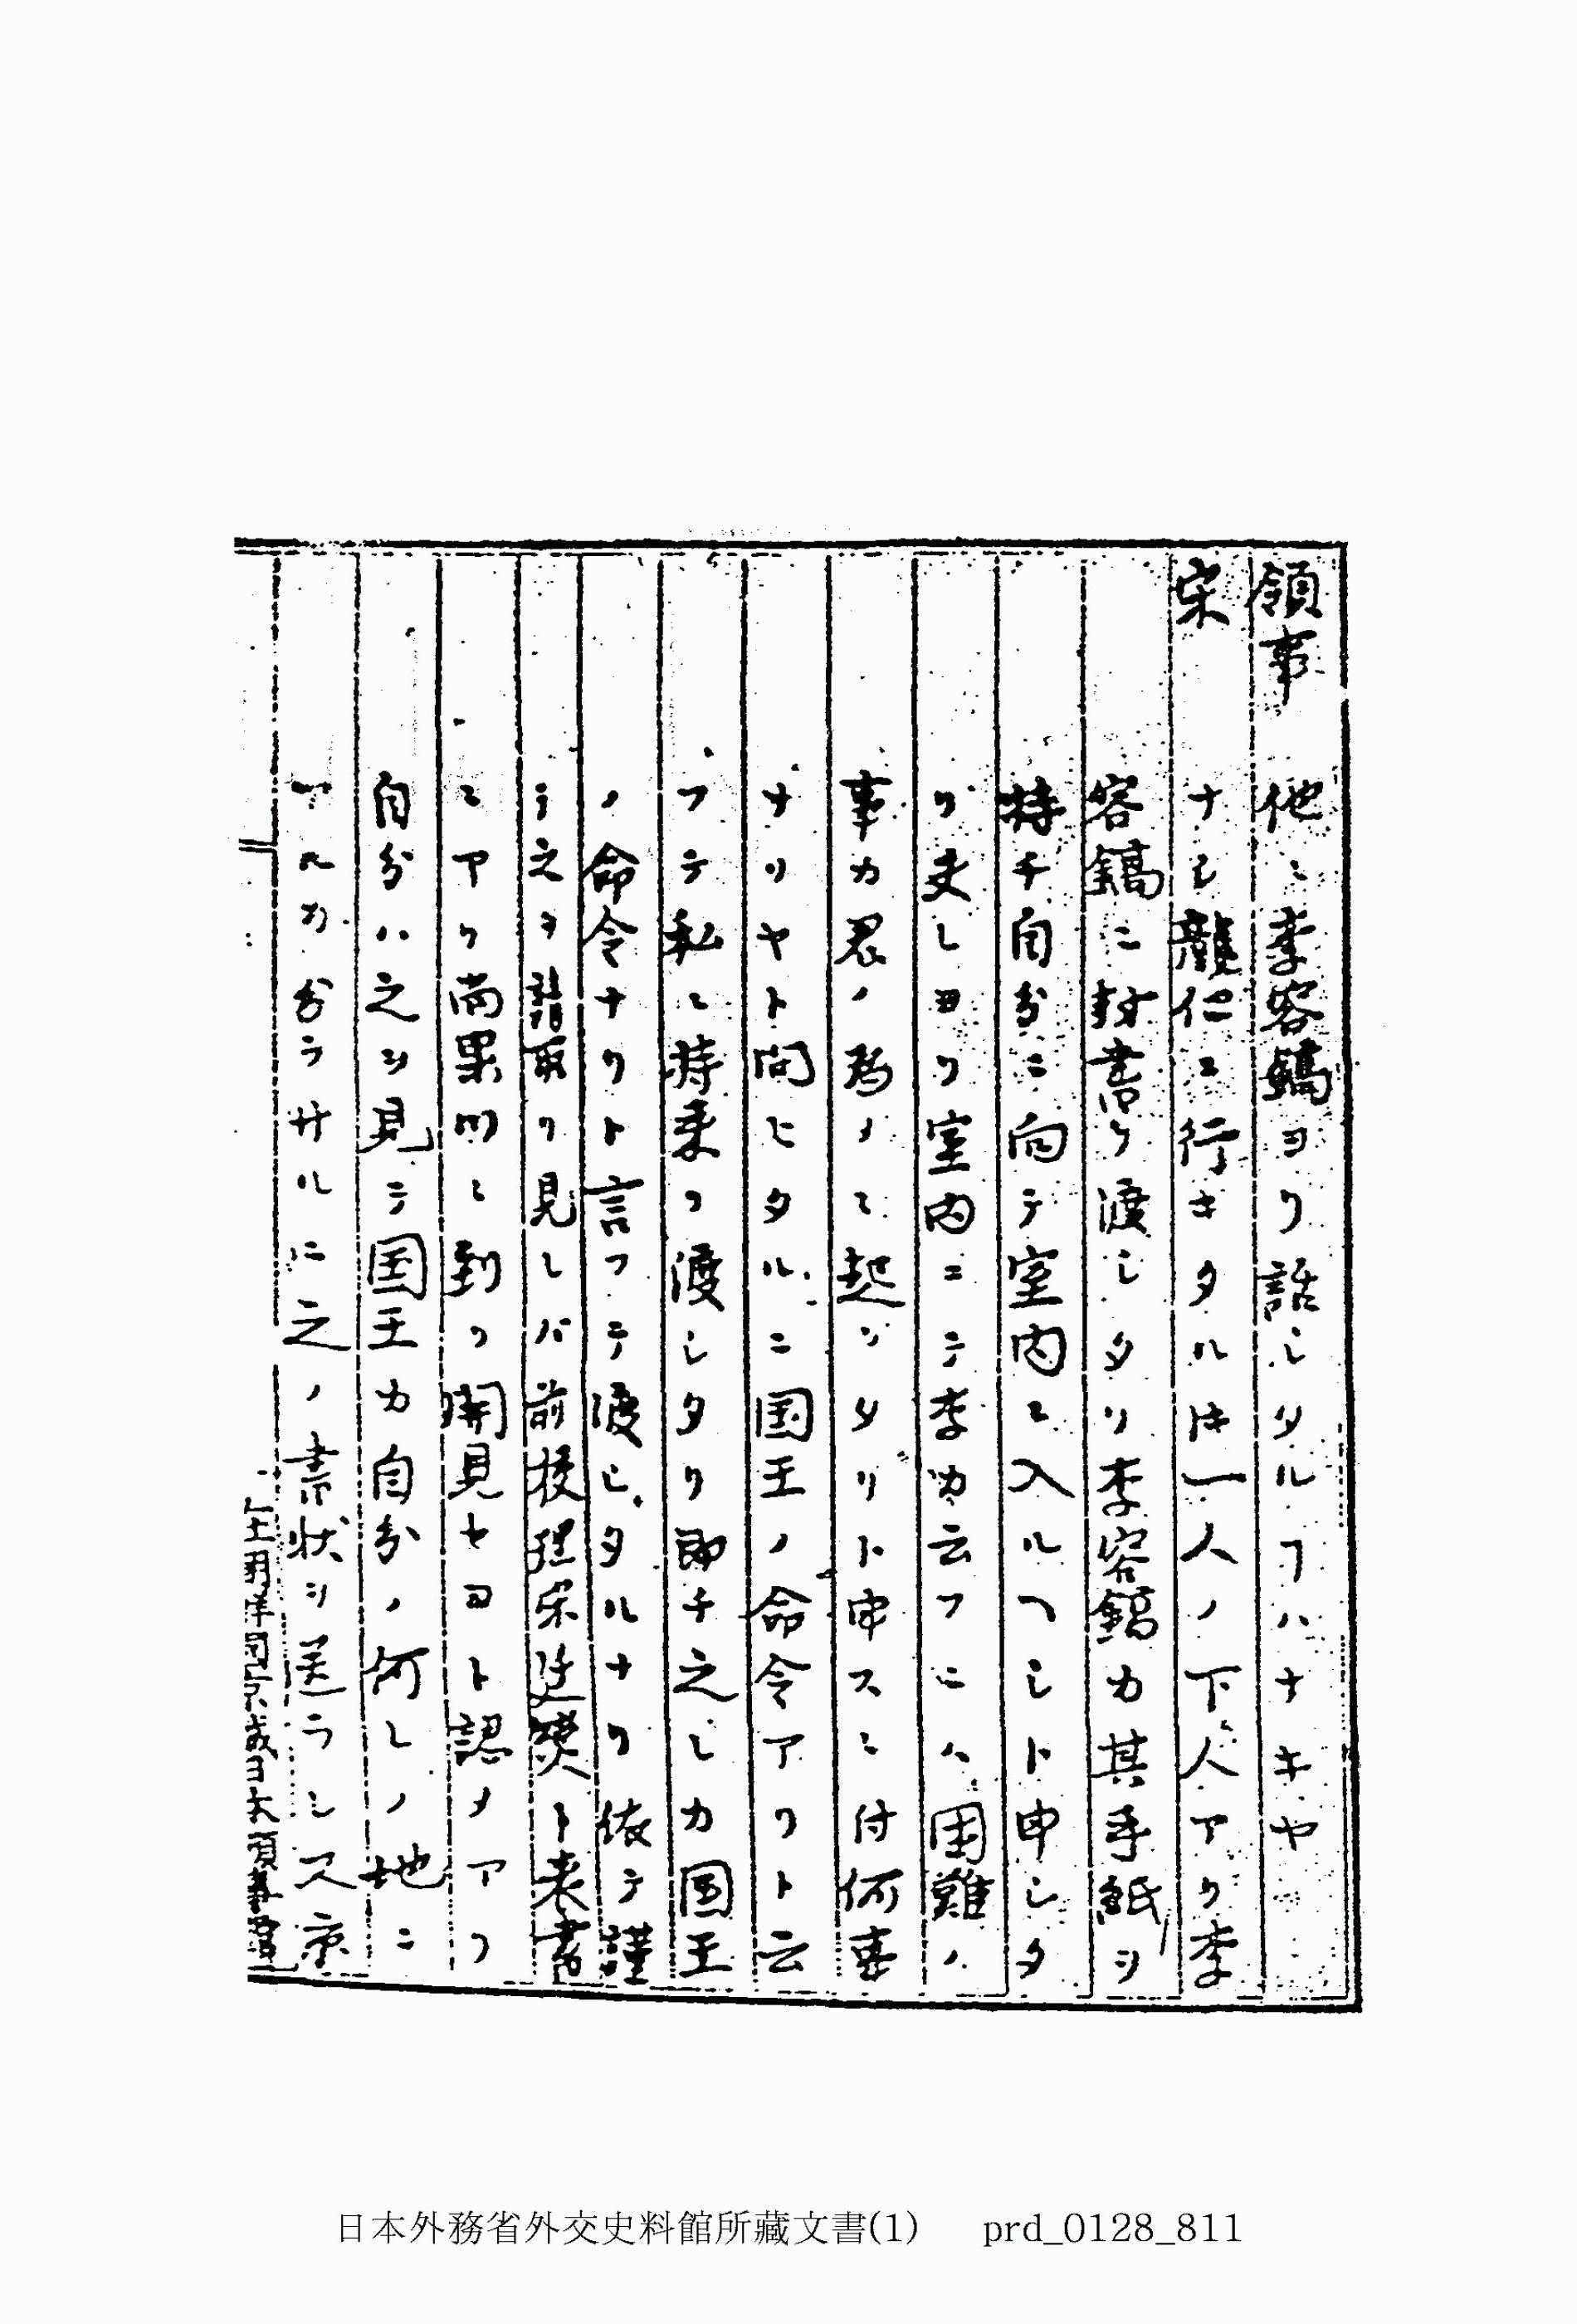 領事 他ニ李容鎬ヨリ話シタルヿハナキヤ
宋 ナシ龍仁ニ行キタル時一人ノ下人アリ李
容鎬ニ封書ヲ渡シタリ李容鎬カ其手紙ヲ
持チ自分ニ向テ室内ニ入ルヘシト申シタ
リ夫レヨリ室内ニテ李カ云フニハ困難ノ
事カ君ノ為メニ起リタリト申スニ付何事
ナリヤト問ヒタルニ国王ノ命令アリト云
フテ私ニ持来リ渡シタリ即チ之レカ国王
ノ命令ナリト言フテ渡シタルナリ依テ謹
テ之ヲ請取リ見レバ前校理宋廷燮ト表書
ニアリ南果川ニ到リ開見セヨト認メアリ
自分ハ之ヲ見テ国王カ自分ノ何レノ地ニ
アルカ分ラサルニ之ノ書状ヲ送ラレス京
在朝鮮国京城日本領事館
日本外務省外交史料館所藏文書(1) prd_0128_811